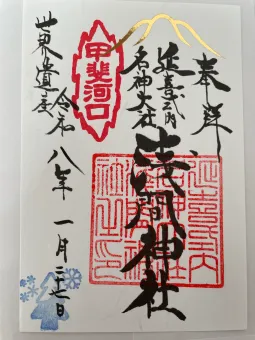 奉拝
延喜式内
名神大社
浅間神社
甲斐河口
世界遺産
令和八年一月二十七日